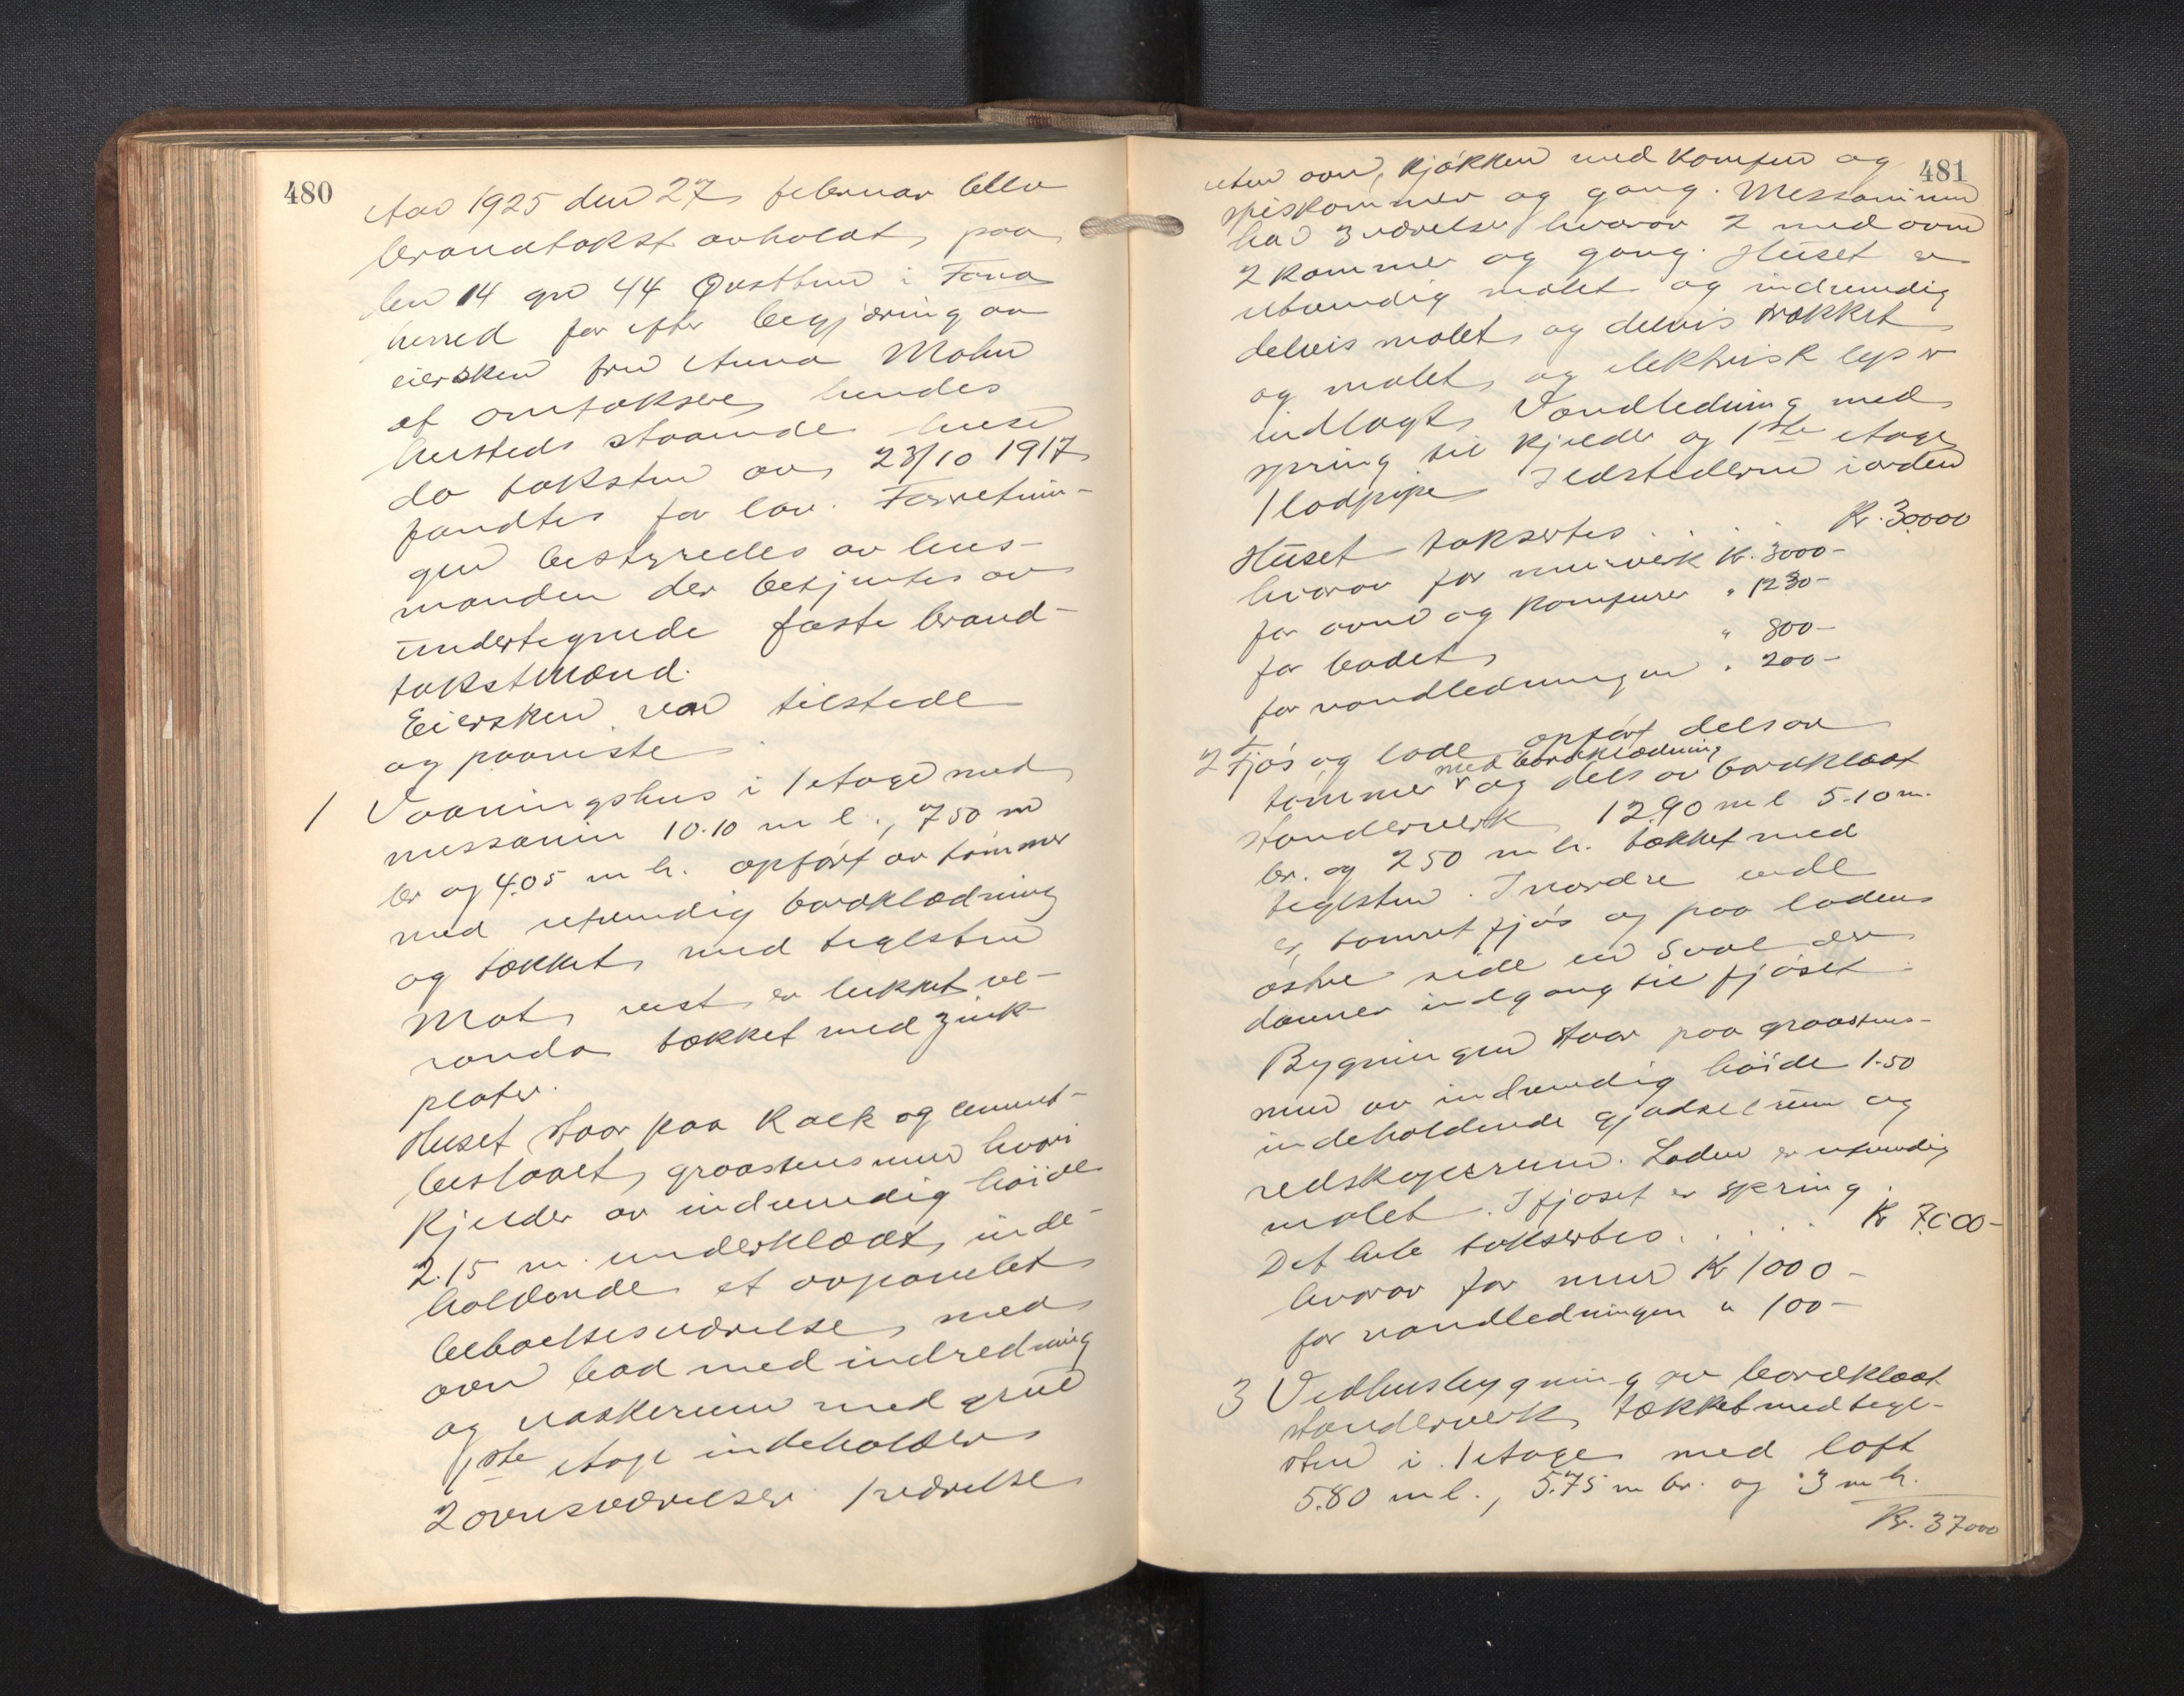 480
Aar 1925 den 27 februar blev
brandtakst avholdt paa
bru 14 gn 44 Øvsttun i Fana
herred for efter begjæring av
eiersken fru Anna Mohn
at omtaksere hendes
hersteds staaende huse
da taksten av 23/10 1917
fandtes for lav. Forretnin-
gen bestyredes av lens-
manden der betjentes av
undertegnede faste brand-
takstmænd.
Eiersken var tilstede
og paaviste
1 Vaaningshus i 1 etage med
messanin 10.10 m l., 750 m
br og 4.05 m h. opført av tømmer
med utvendig bordklædning
og tækket med teglsten
Mot vest er lukket ve-
randa tækket med zink-
plater.
Huset staar paa kalk og cement-
beslaaet graastensmur hvori
kjelder av indvendig høide
2.15 m. underklædt, inde-
holdende et avpanelet
beboelsesværelse med
ovn bad med indredning
og vaskerum med grue
1ste etage indeholder
2 ovnsværelser 1 værelse
481
uten ovn, kjøkken med komfur og
spiskammer og gang. Messaninen
har 3 værelser hvorav 2 med ovn
2 kammer og gang. Huset er
utvendig malet og indvendig
delvis malet og delvis trækket
og malet og elektrisk lys er
indlagt Vandledning med
spring til kjelder og 1ste etage
1 lodpipe Ildstederne i orden
Huset takseres . . . . Kr. 30000
hvorav for murverk Kr. 3000-
for ovne og komfurer " 1230-
for badet " 800-
for vandledningen " 200-
2 Fjøs og lade opført dels av
med bordklædning
tømmer v og dels av bordklædt
stenderverk 12.90 m l 5.10 m.
br. og 250 m h. tækket med
teglsten. I nordre ende
er tømret fjøs og paa ladens
østre side en sval der
danner indgang til fjøset.
Bygningen staar paa graastens-
mur av indvendig høide 1.50
indeholdende gjødselrum og
redskapsrum. Laden er utvendig
malet. I fjøset er spring.
Det hele takseres . . . . Kr 7.000-
hvorav for mur Kr 1000-
for vandledningen " 100-
3 Vedhusbygning av bordklædt
stenderverk tækket med tegl-
sten i 1 etage med loft
5.80 m l., 5.75 m br. og 3 m h.
Kr. 37000